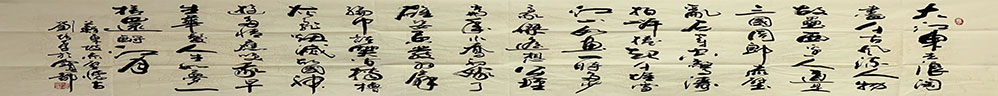 大江東去浪淘
盡千古風流人物
故壘西邊人道是
三國周郎赤壁
亂石穿空驚濤
拍岸捲起千堆雪
江山如畫一時多少
豪傑遙想公瑾
當年小喬初嫁了
雄姿英發羽扇
綸巾談笑間檣櫓
灰飛煙滅故國神
遊多情應笑我早
生華髮人生如夢一
樽還酹江月